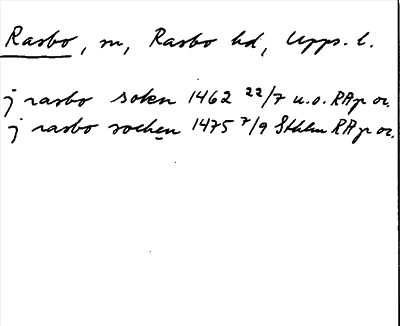 Rasbo, sn, Rasbo hd, Upps. l.
j rasbo sokn 1462 22/7 u.o. RAp or.
j rasbo sochen 1475 7/9 Sthlm RAp or.